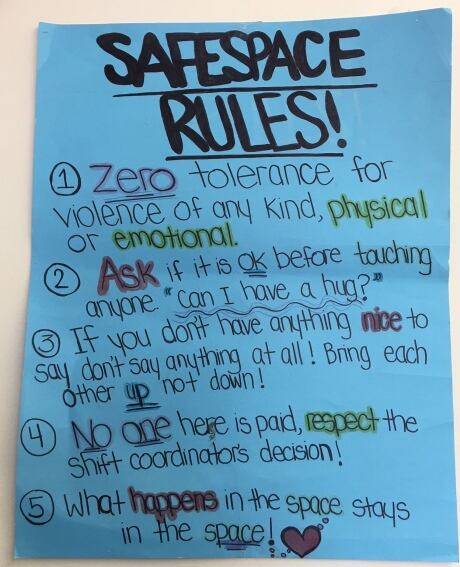 SAFESPACE
RULES!
① Zero tolerance for
violence of any kind, physical
or emotional.
② Ask if it is ok before touching
anyone "Can I have a hug?"
③ If you don't have anything nice to
say don't say anything at all! Bring each
other up not down!
④ No one here is paid, respect the
shift coordinator's decision!
⑤ What happens in the space stays
in the space!